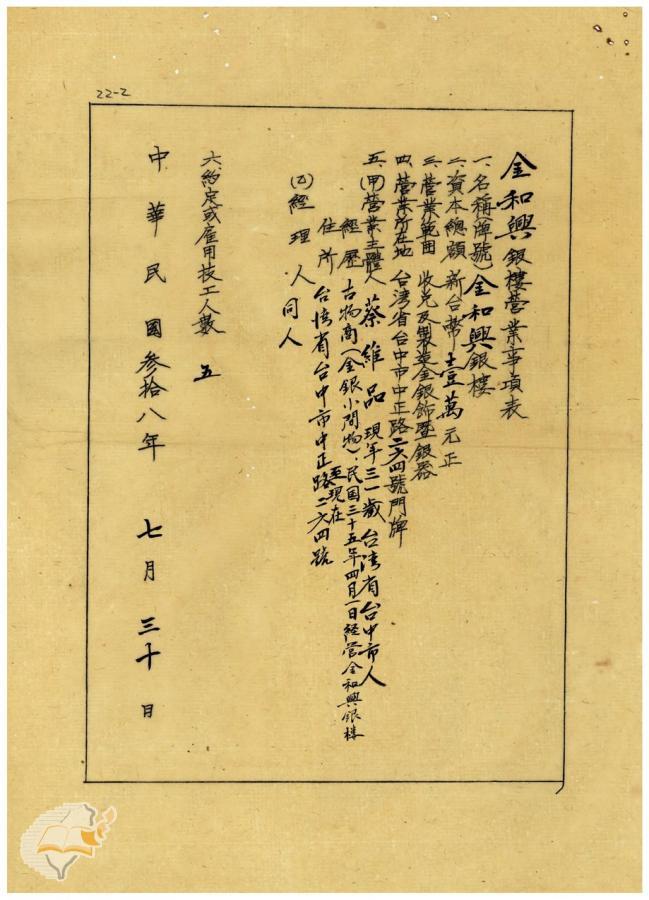 22-2
金和興銀樓營業事項表
一、名稱(牌號)金和興銀樓
二、資本總額 新台幣壹萬元正
三、營業範圍 收兌及製造金銀飾暨銀器
四、營業所在地 台湾省台中市中正路二六四號門牌
五、(甲)營業主體人 蔡維品 現年三一歲 台湾省台中市人
經歷 古物商(金銀小間物)、民国三十五年四月一日経営金和興銀楼
至現在
住所 台湾省台中市中正路二六四號
(乙)經理人 同人
六、約定或雇用技工人數 五
中華民國參拾八年 七月 三十日